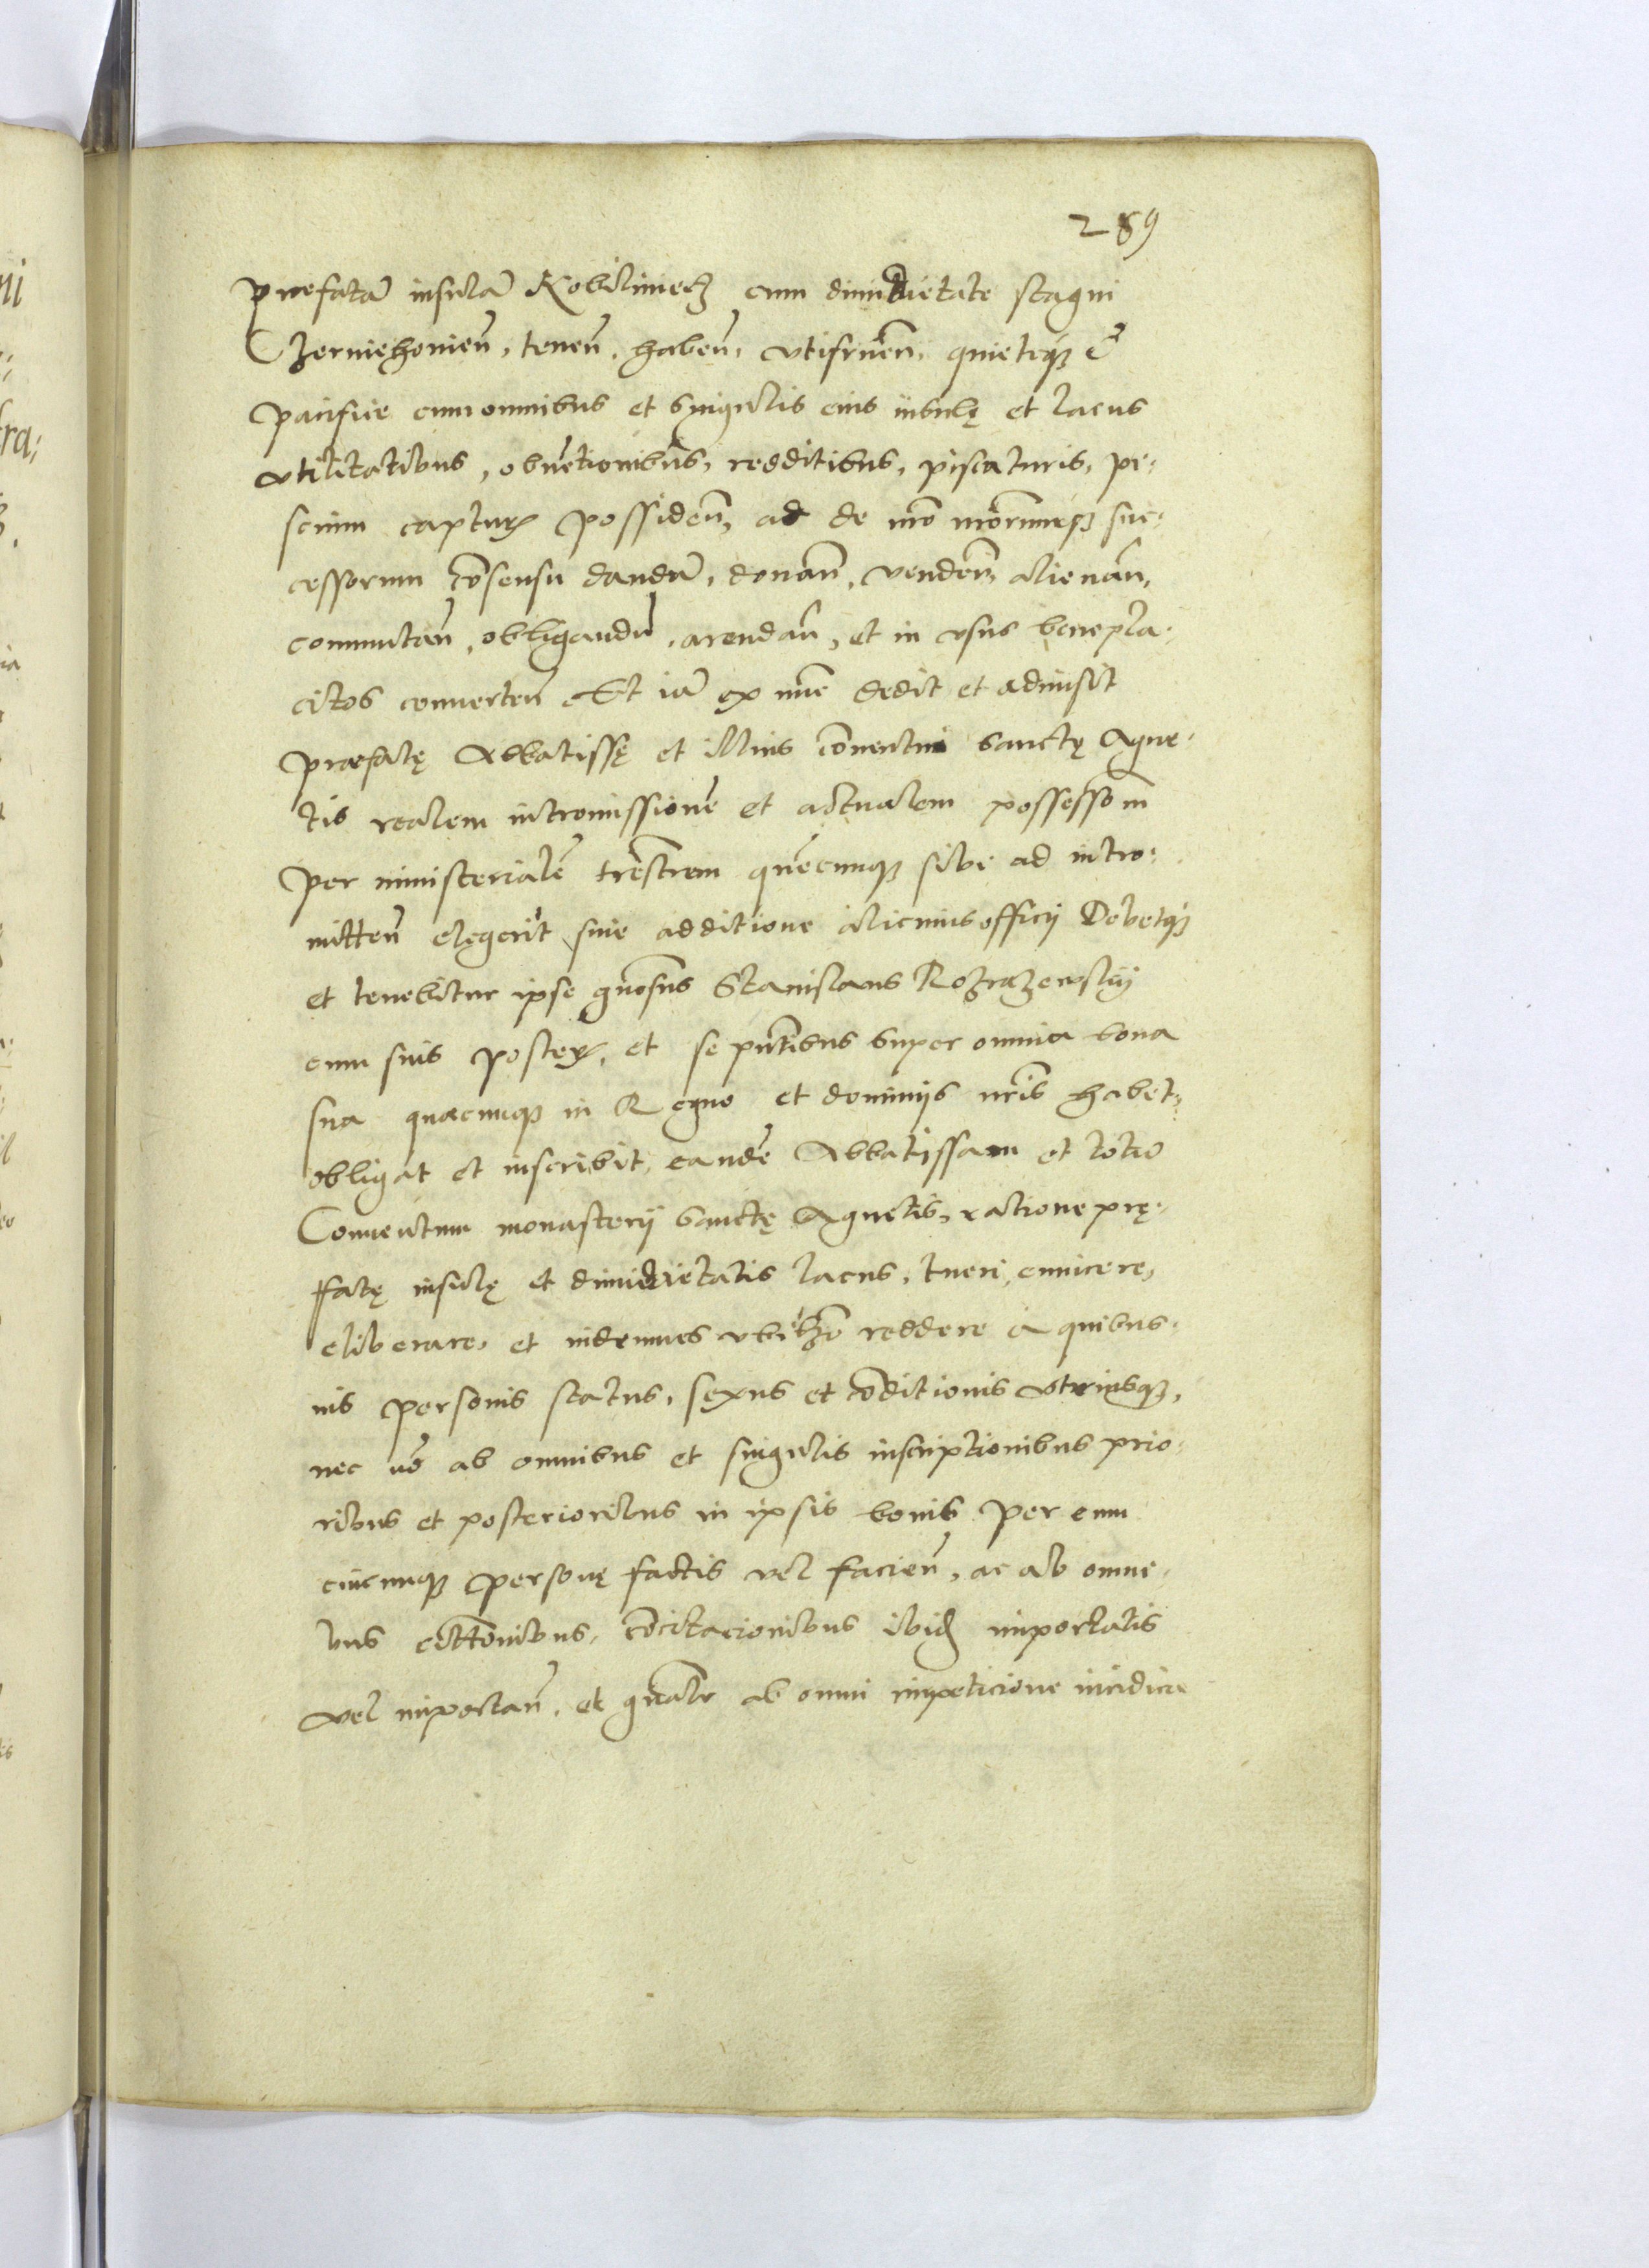 289
præfatā insulā Kobilimecz cum dimidietate stagni
Czerniehonieñ, teneñ, habeñ, vtifrueñ, quieteqz &
pacifice cum omnibus et singulis eius insulę et lacus
vtilitatibus, obuētionibus, redditibus, piscaturis, pi-
scium capturꝭ possideñ, ac de nr̄o nr̄orumqz suc-
cessorum cōsensu dandā, donañ, vendeñ, alienañ,
commutañ, obligandū, arendañ, et in vsus benepla-
citos conuerteñ Et iā ex nūc dedit et admisit
præfatę Abbatissę et illius conuentui Sanctę Agne-
tis realem intromissionē et actualem possess͠om
Per ministerialē tr̄estrem quēcunqz sibi ad intro-
mitteñ elęgerit, sine additione alicuius officij Debetqz
et tenebitur ipse gn̄osus Stanislaus Rozrazewskij
cum suis posterꝭ, et se pn̄tibus super omnia bona
sua quæcunqz in Regno et dominijs nr̄is habet,
obligat et inscribit, eandē Abbatissam et totū
Conuentum monasterij Sanctę Agnetis, ratione prę-
fatę insulę et dimidietatis lacus, tueri, euincere,
eliberare, et indemnes reddere a quibus-
uis personis status, sexus et cōditionis vtriusqz,
nec nō ab omnibus et singulis inscriptionibus prio-
ribus et posterioribus in ipsis bonis per eum
cuicunqz personę factis vel facieñ, ac ab omni-
bus citt̄onibus, cōcitacionibus ibid̄ importatis
Vel importañ, et gn̄alr ab omni impeticione iuridica